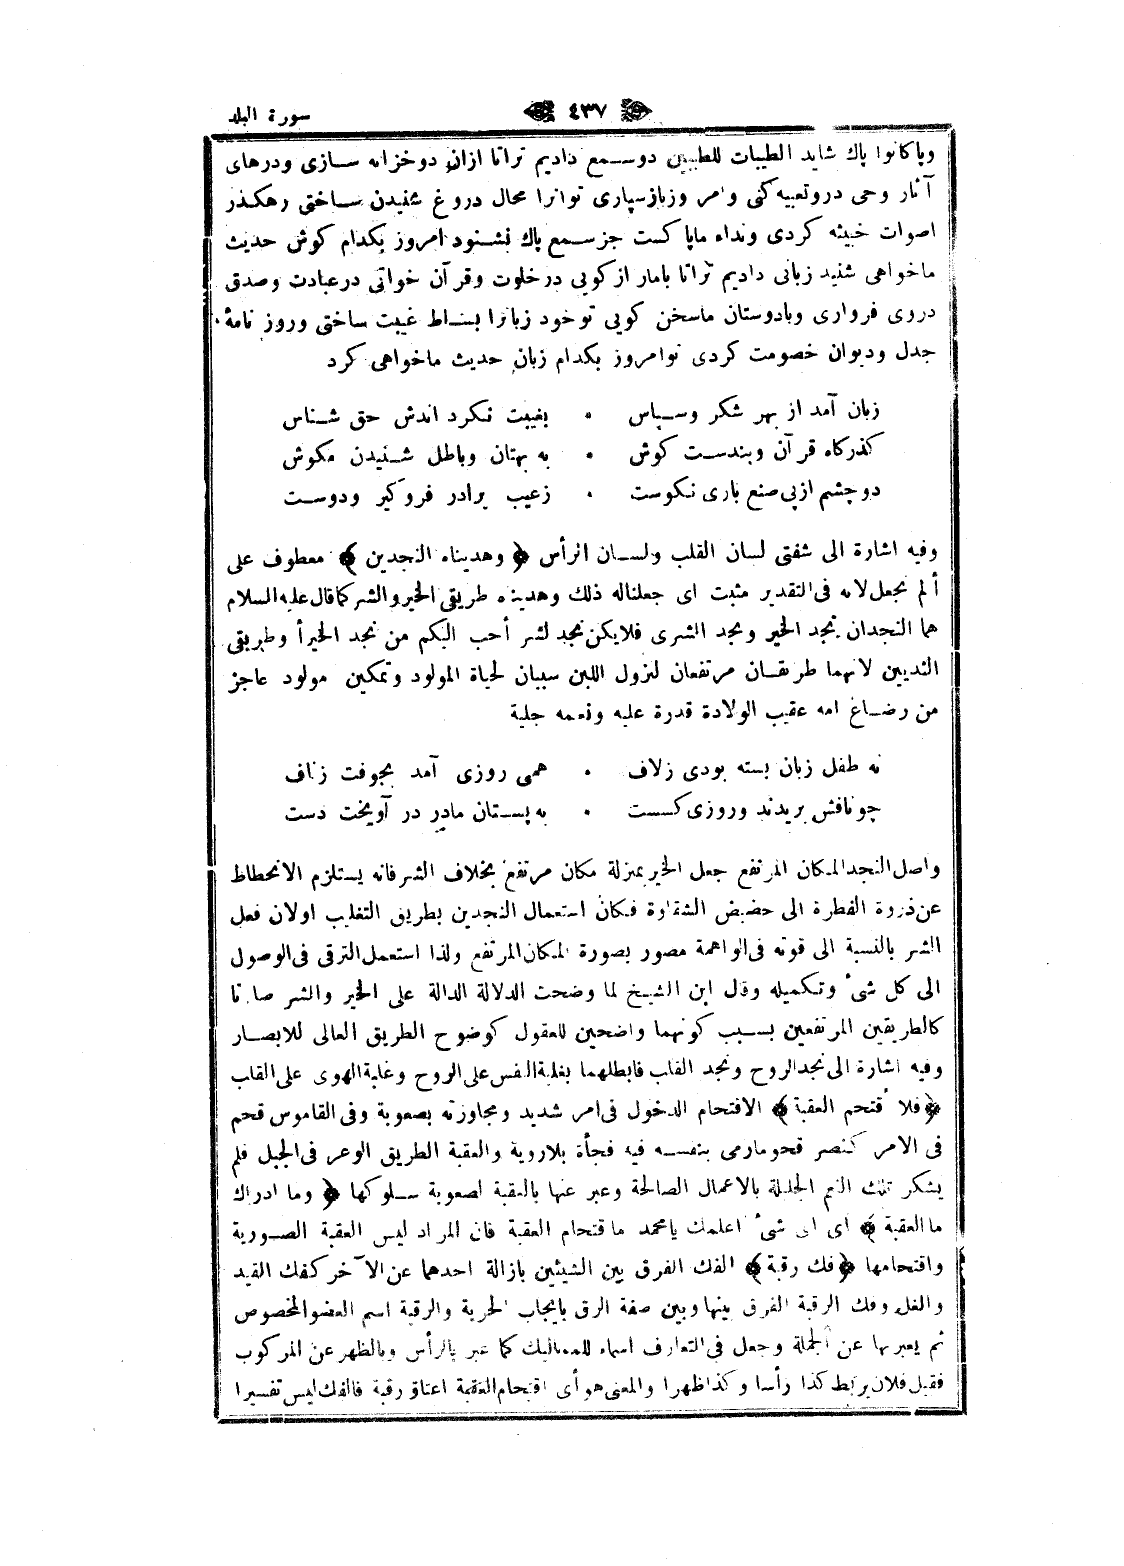 سورة البلد
﴿ ٤٣٧ ﴾
وپاكانوا پاك شايد الطيبات للطيبين دوسمع داديم تراتا ازان دوخزانه سازى ودرهاى
آثار وحى دروتعبيه كنى وامر وزبازسپارى توانرا مجال دروغ شنيدن ساختى رهكذر
اصوات خبيثه كردى ونداء ماپاكست جزسمع پاك نشنود امروز بكدام كوش حديث
ماخواهى شنيد زبانى داديم تراتا بامار ازكويى درخلوت وقرآن خوانى درعبادت وصدق
دروى فروارى وبادوستان ماسخن كويى توخود زبانرا بساط غيبت ساختى وروز نامهٔ
جدل وديوان خصومت كردى توامروز بكدام زبان حديث ماخواهى كرد
زبان آمد از بهر شكر وسپاس • بغيبت نكرد اندش حق شناس
كذركاه قرآن وپندست كوش • به بهتان وباطل شنيدن مكوش
دوچشم ازپى صنع بارى نكوست • زعيب برادر فروكير ودوست
وفيه اشارة الى شفتى لسان القلب ولسان الرأس ﴿ وهديناه النجدين ﴾ معطوف على
ألم نجعل لانه فى التقدير مثبت اى جعلناله ذلك وهديناه طريقى الخير والشر كماقال عليه السلام
هما النجدان نجد الخير ونجد الشرى فلايكن نجد لشر أحب اليكم من نجد الخيرأ وطريقى
الثديين لانهما طريقان مرتفعان لنزول اللبن سببان لحياة المولود وتمكين مولود عاجز
من رضاغ امه عقيب الولادة قدرة عليه ونعمه جلية
نه طفل زبان بسته بودى زلاف • همى روزى آمد بجوفت زناف
چونافش بريدند وروزى كسست • به پستان مادر در آويخت دست
واصل النجد المكان المرتفع جعل الخير بمنزلة مكان مرتفع بخلاف الشرفانه يستلزم الانحطاط
عن ذروة الفطرة الى حضيض الشقاوة فكان استعمال النجدين بطريق التغليب اولان فعل
الشر بالنسبة الى قوته فى الواهمة مصور بصورة المكان المرتفع ولذا استعمل الترقى فى الوصول
الى كل شئ وتكميله وقال ابن الشيخ لما وضحت الدلالة الدالة على الخير والشر صارتا
كالطريقين المرتفعين بسبب كونهما واضحين للعقول كوضوح الطريق العالى للابصار
وفيه اشارة الى نجد الروح ونجد القلب فابطلهما بغلبة النفس على الروح وغلبة الهوى على القلب
﴿ فلا اقتحم العقبة ﴾ الاقتحام الدخول فى امر شديد ومجاوزته بصعوبة وفى القاموس قحم
فى الامر كنصر قحومارمى بنفسه فيه فجأة بلاروية والعقبة الطريق الوعر فى الجبل فلم
يشكر تلك النعم الجليلة بالاعمال الصالحة وعبر عنها بالعقبة لصعوبة سلوكها ﴿ وما ادراك
ماالعقبة ﴾ اى اى شئ اعلمك يامحمد مااقتحام العقبة فان المراد ليس العقبة الصورية
واقتحامها ﴿ فك رقبة ﴾ الفك الفرق بين الشيئين بازالة احدهما عن الآخر كفك القيد
والغل وفك الرقبة الفرق بينها وبين صفة الرق بايجاب الحرية والرقبة اسم العضو المخصوص
ثم يعبربها عن الجملة وجعل فى التعارف اسماء للمماليك كما عبر بالرأس وبالظهر عن المركوب
فقيل فلان يربط كذا رأسا وكذا ظهرا والمعنى هو أى اقتحام العقبة اعتاق رقبة فالفك ليس تفسيرا